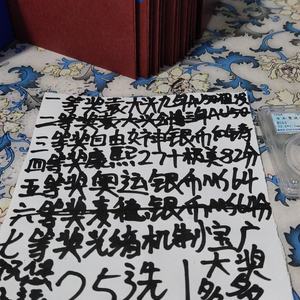 一等奖袁大头九年AU50
二等奖袁大头三年AU50
三等奖自由女神银币
四等奖 27 精美82分
五等奖奥运银币MS64
六等奖 银币MS64分
七等奖光绪机制宝广
祝您 25洗1 大奖
多多